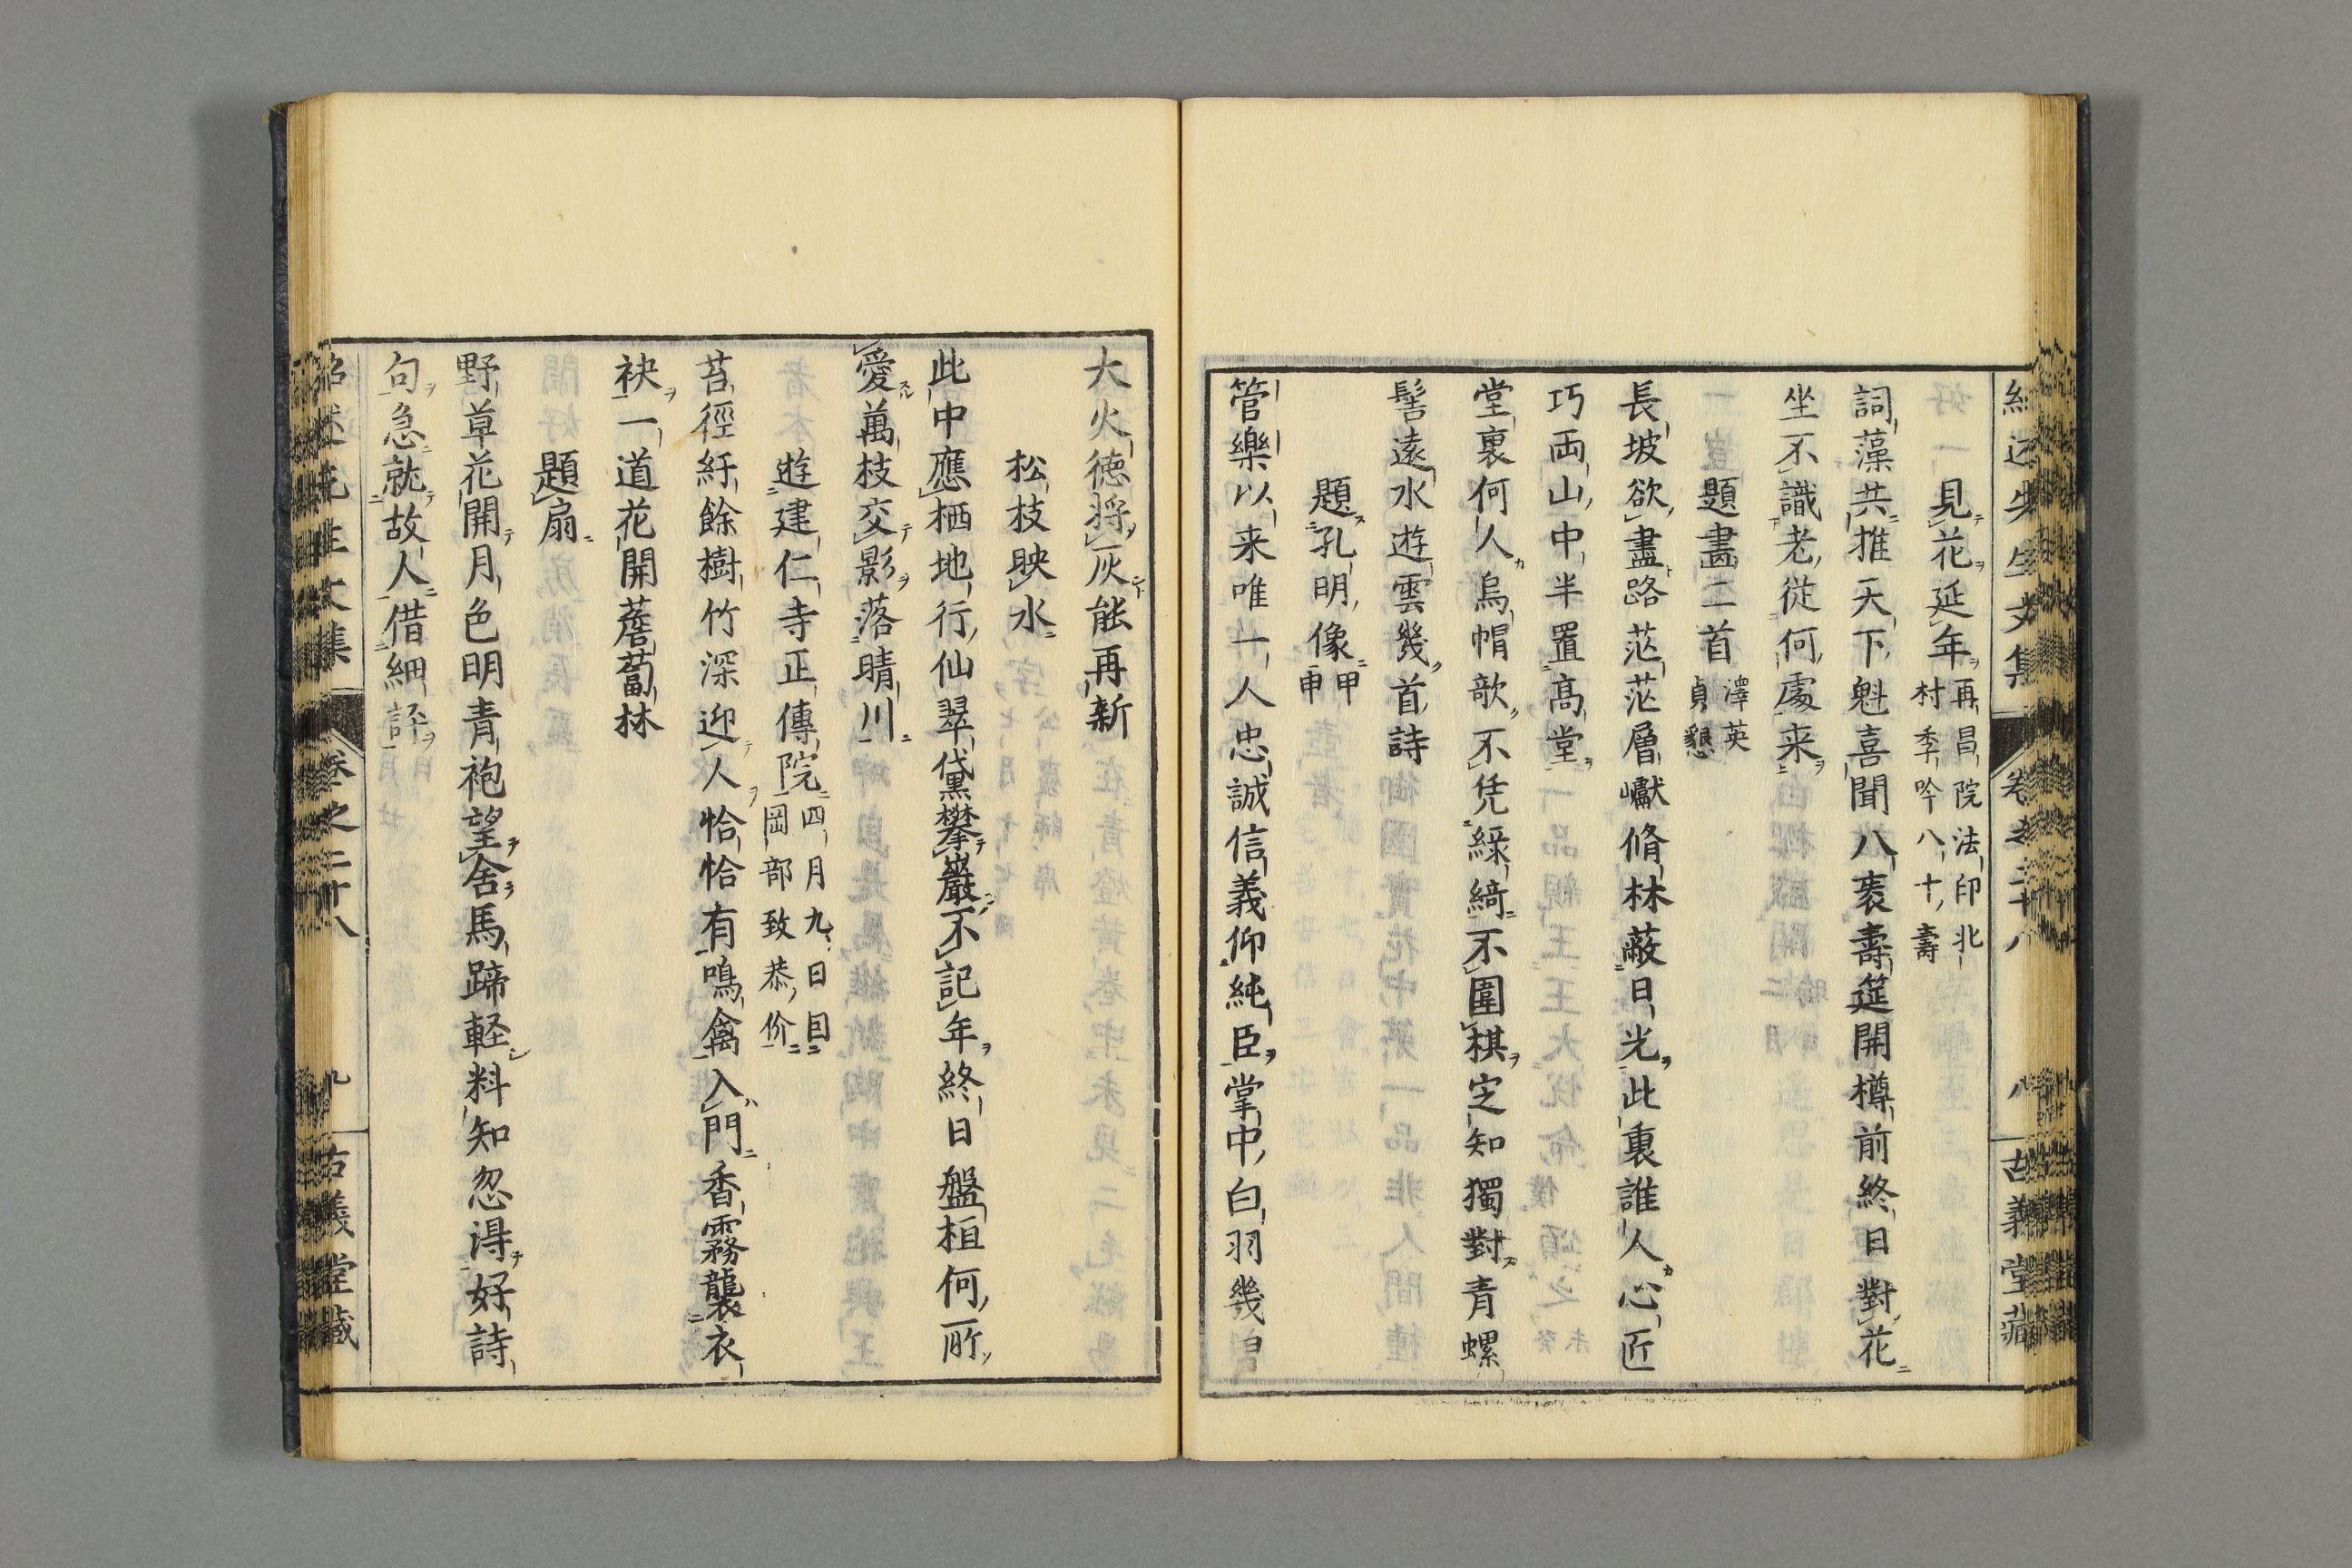 紹述先生文集 卷之二十八 八 古義堂藏
見花延年 再昌院法印北村季吟八十壽
詞藻共推天下魁喜聞八袠壽筵開樽前終日對花
坐不識老從何處来
題畫二首 澤英貞懇
長坡欲盡路茫茫層巘脩林蔽日光此裏誰人心匠
巧兩山中半置髙堂
堂裏何人烏帽欹不凭綠綺不圍棋定知獨對青螺
髻遠水遊雲幾首詩
題孔明像 甲申
管樂以来唯一人忠誠信義仰純臣掌中白羽幾曾
大火德將灰能再新
松枝映水
此中應栖地行仙翠黛攀巖不記年終日盤桓何所
愛萬枝交影落晴川
遊建仁寺正傳院 四月九日因岡部致恭价
苔徑紆餘樹竹深迎人恰恰有鳴禽入門香霧襲衣
袂一道花開薝蔔林
題扇
野草花開月色明青袍望舍馬蹄輕料知忽得好詩
句急就故人借細評
紹述先生文集 卷之二十八 九 古義堂藏